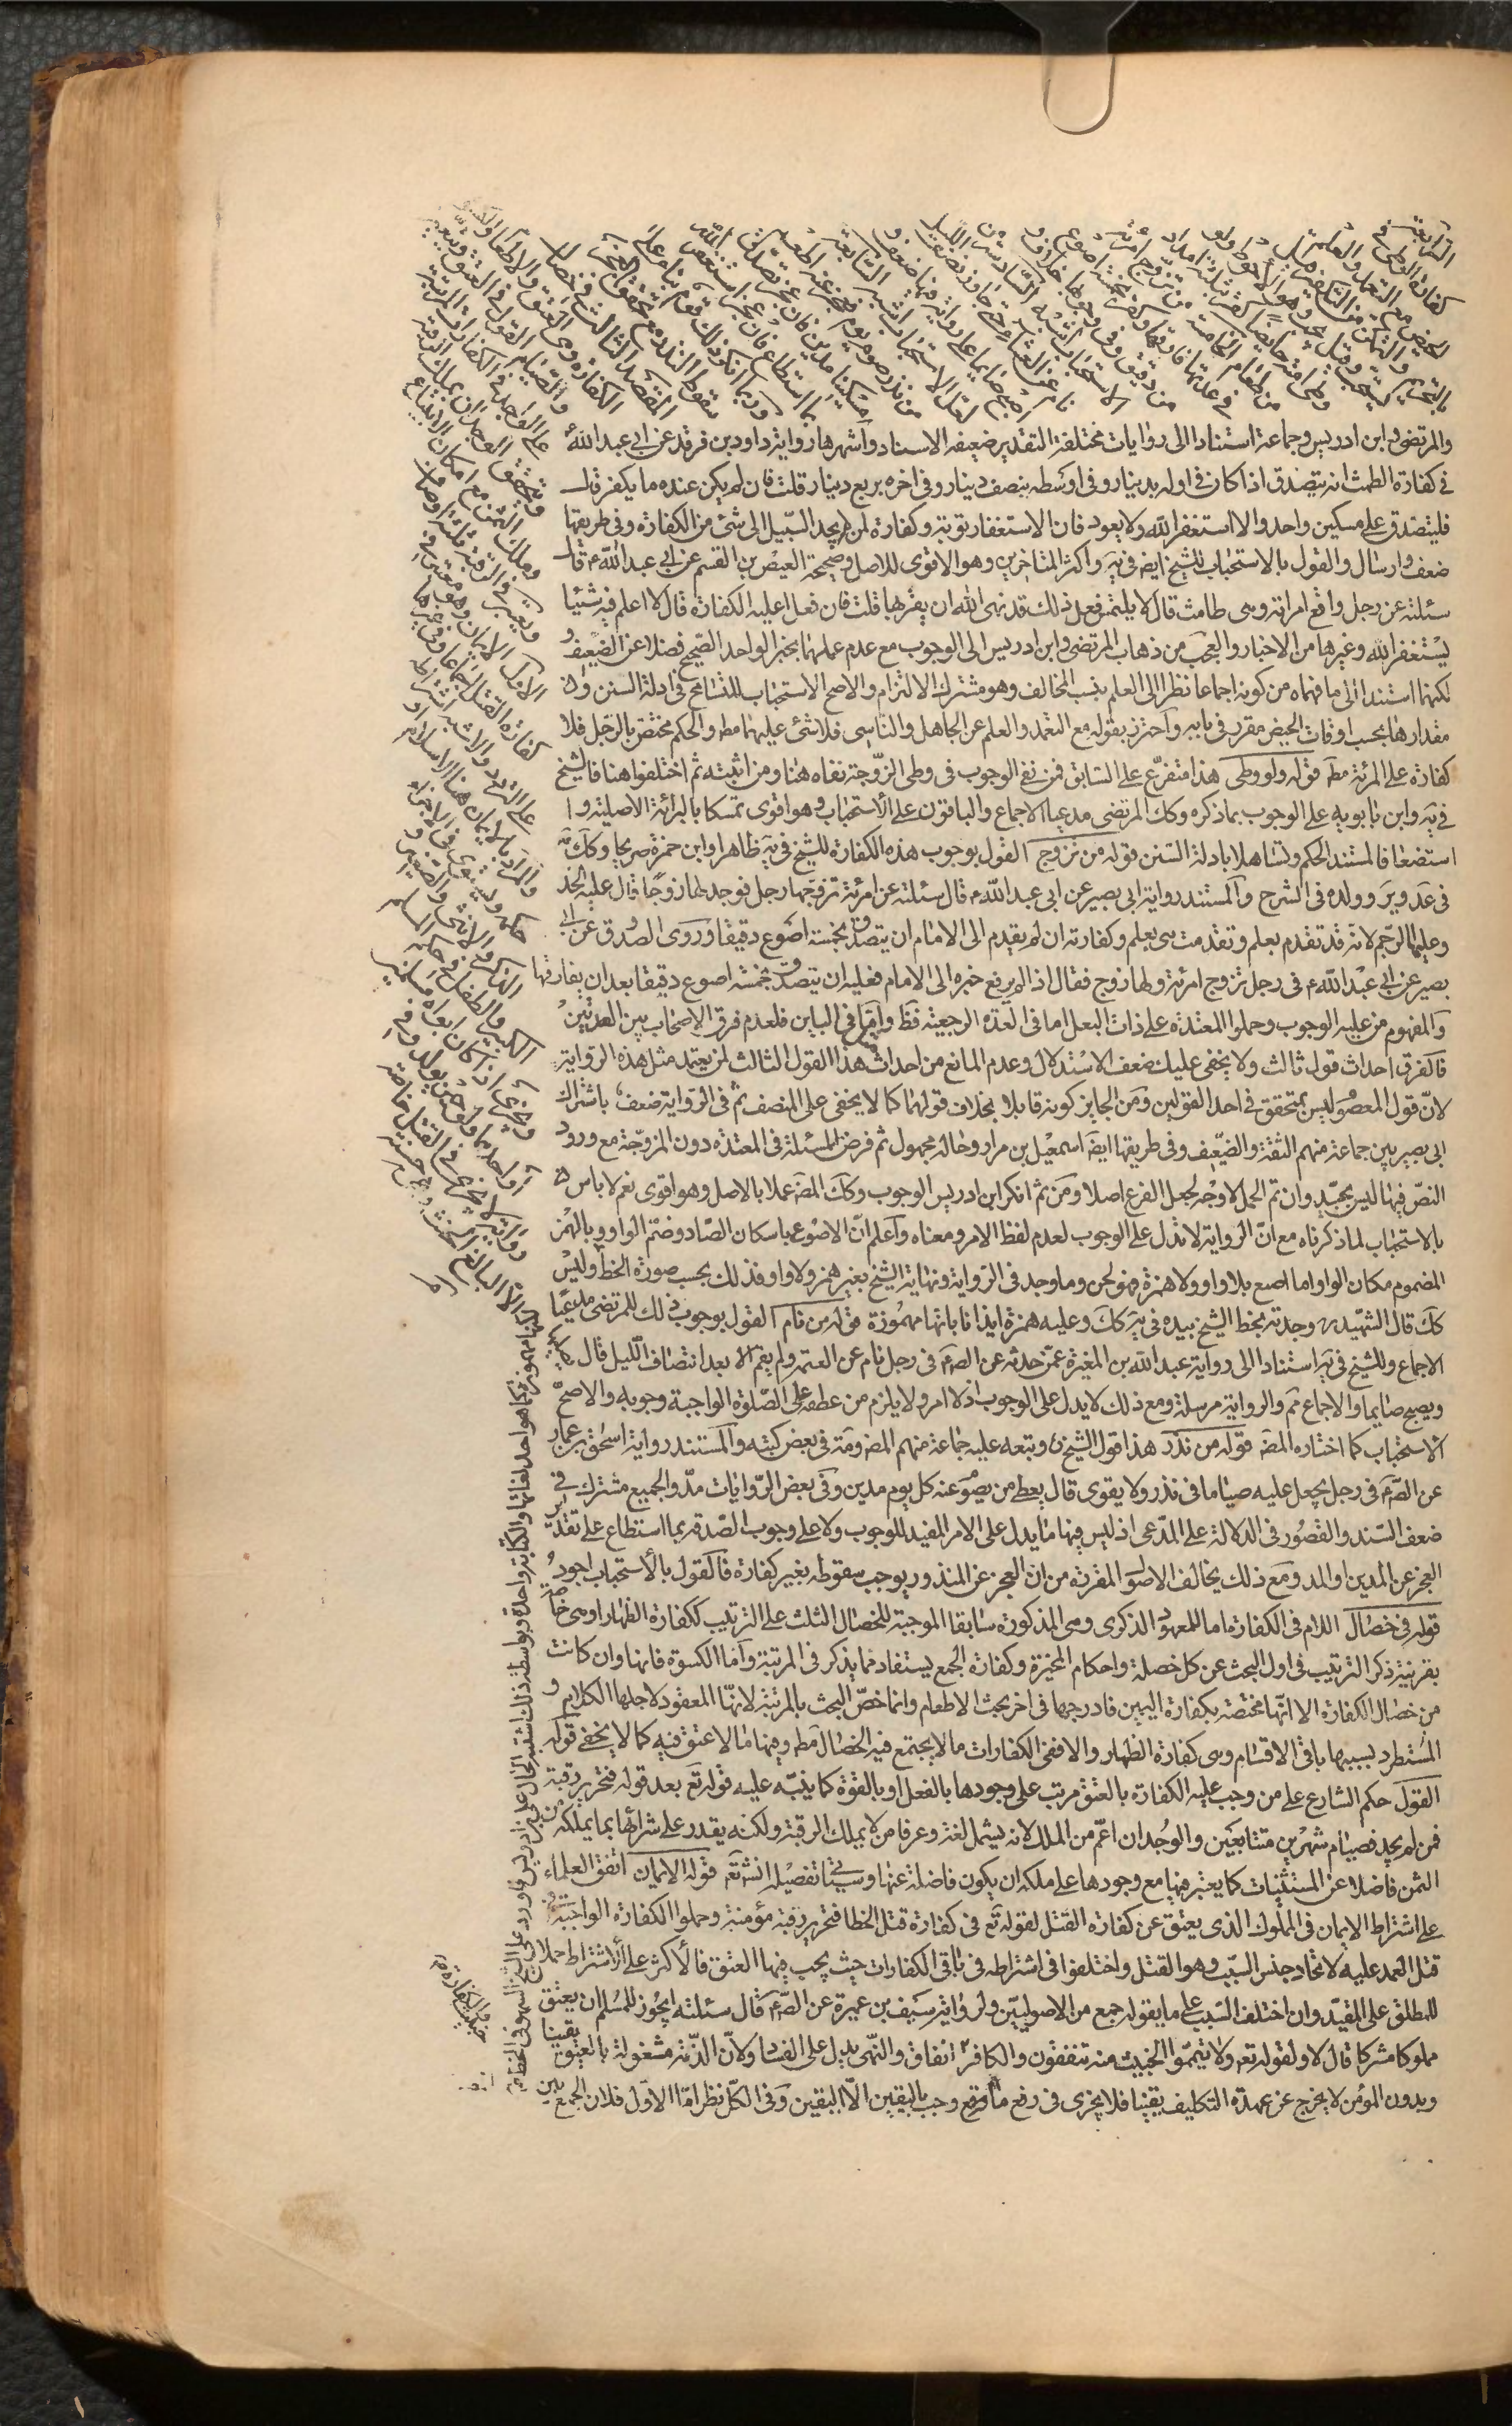 الرابعة
كفارة الوطى فى
الحيض مع التعمد والعلم
بالتحريم والتمكن من التكفير قيل
يستحب وقيل يجب وهو الاحوط ولو
وطى امته حايضا كفر بثلثة امداد
من طعام الخامسة من تزوج امرئة
فى عدتها فارقها وكفر بخمسة اصوع
من دقيق وفى وجوبها خلاف و
الاستحباب اشبه السادسة من
نام عن العشاء حتى جاوز نصف الليل
اصبح صايما على رواية فيها ضعف و
لعل الاستحباب اشبه السابعة
من نذر صوم يوم فعجز عنه اطعم
مسكينا مدين فان عجز تصدق
بما استطاع فان عجز استغفر الله
وربما انكر ذلك قوم بناء على
سقوط النذر مع تحقق العجز
المقصد الثالث فى خصال
الكفارة وهى العتق والاطعام
والصيام القول فى العتق ويتعين
على الواجد فى الكفارات المرتبة
ويتحقق الوجدان بملك الرقبة
وملك الثمن مع امكان الابتياع
ويعتبر فى الرقبة ثلثة اوصاف
الاول الايمان وهو معتبر فى
كفارة القتل اجماعا وفى غيرها
على التردد والاشبه اشتراطه
والمراد بالايمان هنا الاسلام او
حكمه ويستوى فى الاجزاء
الذكر والانثى والصغير و
الكبير والطفل فى حكم المسلم
ويجزى اذا كان ابواه مسلمين
او احدهما ولو حين يولد وفى
رواية لا يجزى فى القتل خاصة
الا البالغ الحنث وهى حسنة
والمرتضى وابن ادريس وجماعة استنادا الى روايات مختلفة التقدير ضعيفه الاسناد واشهرها رواية داود بن فرقد عن ابى عبد الله ع
فى كفارة الطمث انه يتصدق اذا كان فى اوله بدينار وفى اوسطه بنصف دينار وفى اخره بربع دينار قلت فان لم يكن عنده ما يكفر قال
فليتصدق على مسكين واحد والا استغفر الله ولا يعود فان الاستغفار توبة وكفارة لمن لم يجد السبيل الى شئ من الكفارة وفى طريقها
ضعف وارسال والقول بالاستحباب للشيخ ايضا فى يه واكثر المتاخرين وهو الاقوى للاصل وصحيحة العيص بن القسم عن ابى عبد الله ع قال
سئلته عن رجل واقع امراته وهى طامث قال لا يلتمس فعل ذلك قد نهى الله ان يقربها قلت فان فعل اعليه الكفارة قال لا اعلم فيه شيئا
يستغفر الله وغيرها من الاخبار والعجب من ذهاب المرتضى وابن ادريس الى الوجوب مع عدم عملهما بخبر الواحد الصحيح فضلا عن الضعيف و
لكنهما استندا الى ما فهماه من كونه اجماعا نظرا الى العلم بنسب المخالف وهو مشترك الالتزام والاصح الاستحباب للتسامح فى ادلة السنن وان
مقدارها بحسب اوقات الحيض مقرر فى بابه واحترز بقوله مع التعمد والعلم عن الجاهل والناسى فلا شئ عليهما مطه والحكم مختص بالرجل فلا
كفارة على المرئة مطه قوله ولو وطى هذا متفرع على السابق فمن نفى الوجوب فى وطى الزوجة نفاه هنا ومن اثبته ثم اختلفوا هنا فالشيخ
فى يه وابن بابويه على الوجوب بما ذكره وكك المرتضى مدعيا الاجماع والباقون على الاستحباب وهو اقوى تمسكا بالبرائة الاصلية و ا
استضعافا لمستند الحكم وتساهلا بادلة السنن قوله من تزوج القول بوجوب هذه الكفارة للشيخ فى يه ظاهرا وابن حمزة صريحا وكك مة
فى عد وير وولده فى الشرح والمستند رواية ابى بصير عن ابى عبد الله ع قال سئلته عن امرئة تزوجها رجل فوجد لها زوجا قال عليه الحد
وعليها الرجم لانه قد تقدم بعلم وتقدمت هى بعلم وكفارته ان لم يقدم الى الامام ان يتصدق بخمسة اصوع دقيقا وروى الصدوق عن ابى
بصير عن ابى عبد الله ع فى رجل تزوج امرئة ولها زوج فقال اذا لم يرفع خبره الى الامام فعليه ان يتصدق بخمسة اصوع دقيقا بعد ان يفارقها
والمفهوم من عليه الوجوب وحملوا المعتدة على ذات البعل اما فى العدة الرجعية فظ واما فى الباين فلعدم فرق الاصحاب بين العدتين
فالفرق احداث قول ثالث ولا يخفى عليك ضعف الاستدلال وعدم المانع من احداث هذا القول الثالث لمن يعتمد مثل هذه الرواية
لان قول المعصوم ليس بمتحقق فى احد القولين ومن الجايز كونه قايلا بخلاف قولهما كما لا يخفى على المنصف ثم فى الرواية ضعف باشتراك
ابى بصير بين جماعة منهم الثقة والضعيف وفى طريقها ايضا اسمعيل بن مرار وحاله مجهول ثم فرض المسئلة فى المعتدة دون المزوجة مع ورود
النص فيها ليس بجيد وان تم الحمل لا وجه لجعل الفرع اصلا ومن ثم انكر ابن ادريس الوجوب وكك المصه عملا بالاصل وهو اقوى نعم لا باس
بالاستحباب لما ذكرناه مع ان الرواية لا تدل على الوجوب لعدم لفظ الامر ومعناه واعلم ان الاصوع باسكان الصاد وضم الواو وبالهمز
المضموم مكان الواو اما اصع بلا واو ولا همزة فهو لحن وما وجد فى الرواية ونهاية الشيخ بغير همز ولا واو فذلك بحسب صورة الخط وليس
كك قال الشهيد ره وجدته بخط الشيخ بيده فى يه كك وعليه همزة ايذانا بانها مهموزة قوله من نام القول بوجوب ذلك للمرتضى مدعيا
الاجماع وللشيخ فى يه استنادا الى رواية عبد الله بن المغيرة عمن حدثه عن الصه فى رجل نام عن العتمه ولم يقم الا بعد انتصاف الليل قال يصليها
ويصبح صايما والاجماع مم والرواية مرسلة ومع ذلك لا يدل على الوجوب اذ لا امر ولا يلزم من عطفه على الصلوة الواجبة وجوبه والاصح
الاستحباب كما اختاره المصه قوله من نذر هذا قول الشيخ ره وتبعه عليه جماعة منهم المصه ومة فى بعض كتبه والمستند رواية اسحق بن عمار
عن الصه فى رجل يجعل عليه صياما فى نذر ولا يقوى قال يعطى من يصوم عنه كل يوم مدين وفى بعض الروايات مد والجميع مشترك فى
ضعف السند والقصور فى الدلالة على المدعى اذ ليس فيها ما يدل على الامر المفيد للوجوب ولا على وجوب الصدقة بما استطاع على تقدير
العجز عن المدين او المد ومع ذلك يخالف الاصول المقررة من ان العجز عن المنذور يوجب سقوطه بغير كفارة فالقول بالاستحباب اجود
قوله فى خصال اللام فى الكفارة اما للمعهود الذكرى وهى المذكورة سابقا الموجبة للخصال الثلث على الترتيب ككفارة الظهار او هى خاصة
بقرينة ذكر الترتيب فى اول البحث عن كل خصلة واحكام المخيرة وكفارة الجمع يستفاد مما يذكر فى المرتبة واما الكسوة فانها وان كانت
من خصال الكفارة الا انها مختصة بكفارة اليمين فادرجها فى اخر بحث الاطعام وانما خص البحث بالمرتبة لانها المعقود لاجلها الكلام و
المستطرد بسببها باقى الاقسام وهى كفارة الظهار والا ففى الكفارات ما لا يجتمع فيه الخصال مطه ومنها ما لا عتق فيه كما لا يخفى قوله
القول حكم الشارع على من وجب عليه الكفارة بالعتق مرتب على وجودها بالفعل او بالقوة كما ينبه عليه قوله تع بعد قوله فتحرير رقبة
فمن لم يجد فصيام شهرين متتابعين والوجدان اعم من الملك لانه يشمل لغة وعرفا من لا يملك الرقبة ولكنه يقدر على شرائها بما يملكه من
الثمن فاضلا عن المستثنيات كما يعتبر فيها مع وجودها على ملكه ان يكون فاضلة عنها وسيأتى تفصيله انشه تع قوله الايمان اتفق العلماء
على اشتراط الايمان فى المملوك الذى يعتق عن كفارة القتل لقوله تع فى كفارة قتل الخطا فتحرير رقبة مؤمنة وحملوا الكفارة الواجبة فى
قتل العمد عليه لاتحاد جنس السبب وهو القتل واختلفوا فى اشتراطه فى باقى الكفارات حيث يجب فيها العتق فالاكثر على الاشتراط حملا
للمطلق على المقيد وان اختلف السبب على ما يقوله جمع من الاصوليين ولرواية سيف بن عميرة عن الصه قال سئلته ايجوز للمسلم ان يعتق
مملوكا مشركا قال لا ولقوله تعه ولا تيمموا الخبيث منه تنفقون والكافر خبيث انفاق والنهى يدل على الفساد ولان الذمة مشغولة بالعتق يقينا
وبدون المؤمن لا يخرج عن عهدة التكليف يقينا فلا يجزى فى رفع ما وجب باليقين الا اليقين وفى الكل نظر اما الاول فلان الجمع بين